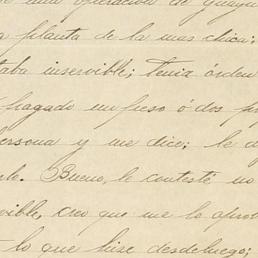 una operacion de guaya
a planta de la mas chica:
taba inservible; tenia órden
pagado un peso ó dos p
persona y me dice: le a
Bueno, le contesté no
vible, creo que me lo apro
lo que hize desde luego;